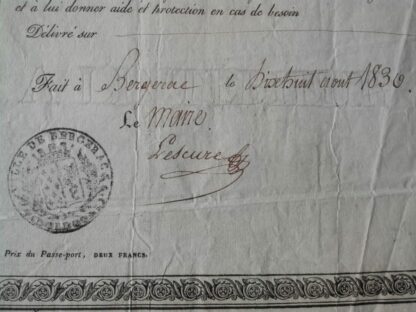 et à lui donner aide et protection en cas de besoin
Délivré sur
Fait à Bergerac le dixhuit aout 1830
Le Maire
Lescure
VILLE DE BERGERAC
Prix du Passe-port, DEUX FRANCS.